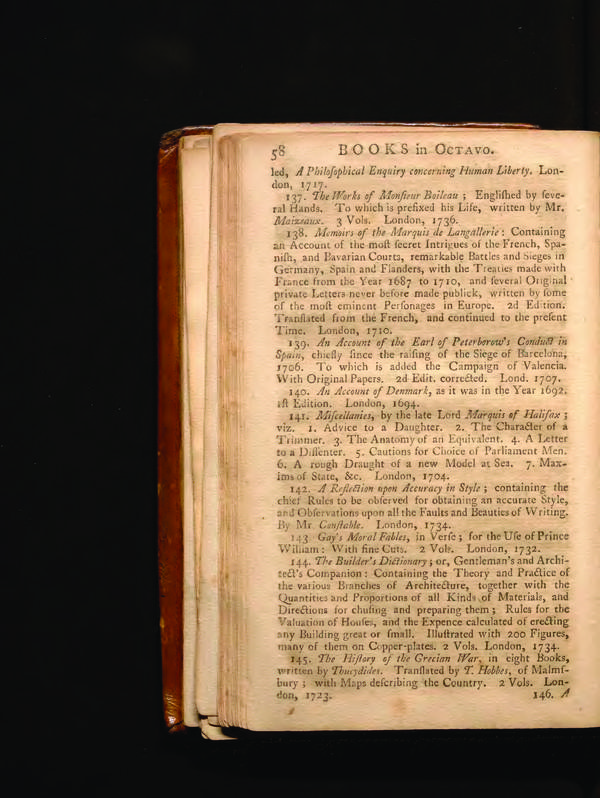 58 BOOKS in OCTAVO.
led, A Philoſophical Enquiry concerning Human Liberty. Lon-
don, 1717.
137. The Works of Monſieur Boileau ; Engliſhed by ſeve-
ral Hands. To which is prefixed his Life, written by Mr.
Maizeaux. 3 Vols. London, 1736.
138. Memoirs of the Marquis de Langallerie : Containing
an Account of the moſt ſecret Intrigues of the French, Spa-
niſh, and Bavarian Courts, remarkable Battles and Sieges in
Germany, Spain and Flanders, with the Treaties made with
France from the Year 1687 to 1710, and ſeveral Original
private Letters never before made publick, written by ſome
of the moſt eminent Perſonages in Europe. 2d Edition.
Tranſlated from the French, and continued to the preſent
Time. London, 1710.
139. An Account of the Earl of Peterborow's Conduct in
Spain, chiefly ſince the raiſing of the Siege of Barcelona,
1706. To which is added the Campaign of Valencia.
With Original Papers. 2d Edit. corrected. Lond. 1707.
140. An Account of Denmark, as it was in the Year 1692.
1ſt Edition. London, 1694.
141. Miſcellanies, by the late Lord Marquis of Halifax ;
viz. 1. Advice to a Daughter. 2. The Character of a
Trimmer. 3. The Anatomy of an Equivalent. 4. A Letter
to a Diſſenter. 5. Cautions for Choice of Parliament Men.
6. A rough Draught of a new Model at Sea. 7. Max-
ims of State, &c. London, 1704.
142. A Reflection upon Accuracy in Style ; containing the
chief Rules to be obſerved for obtaining an accurate Style,
and Obſervations upon all the Faults and Beauties of Writing.
By Mr. Conſtable. London, 1734.
143 Gay's Moral Fables, in Verſe ; for the Uſe of Prince
William : With fine Cuts. 2 Vols. London, 1732.
144. The Builder's Dictionary ; or, Gentleman's and Archi-
tect's Companion : Containing the Theory and Practice of
the various Branches of Architecture, together with the
Quantities and Proportions of all Kinds of Materials, and
Directions for chuſing and preparing them ; Rules for the
Valuation of Houſes, and the Expence calculated of erecting
any Building great or ſmall. Illuſtrated with 200 Figures,
many of them on Copper-plates. 2 Vols. London, 1734.
145. The Hiſtory of the Grecian War, in eight Books,
written by Thucydides. Tranſlated by T. Hobbes, of Malmſ-
bury ; with Maps deſcribing the Country. 2 Vols. Lon-
don, 1723. 146. A